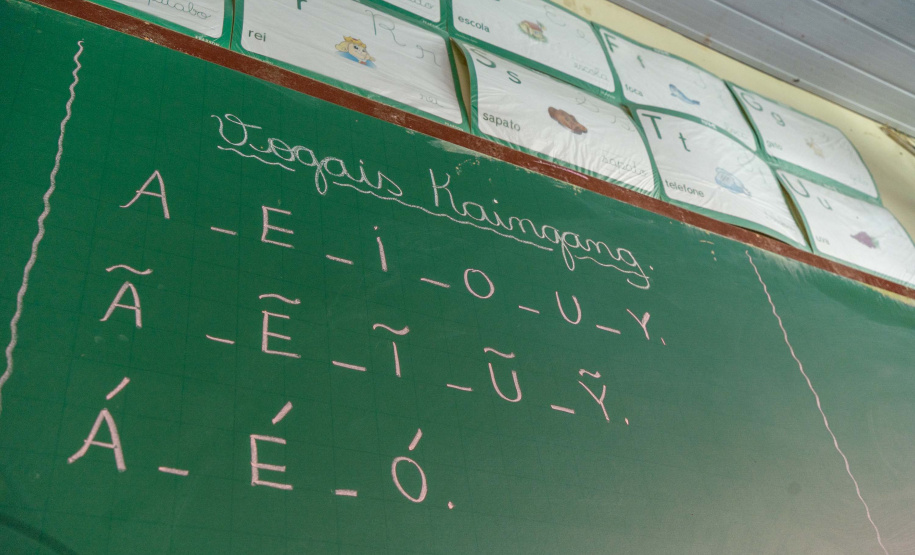 rei
escola
F f
foca
G g
S s
sapato
sapato
T t
telefone
U u
uva
Vogais Kaingang.
A _ E _ i _ O _ U _ Y.
Ã _ Ẽ _ Ĩ _ Ũ _ Ỹ.
Á _ É _ Ó.